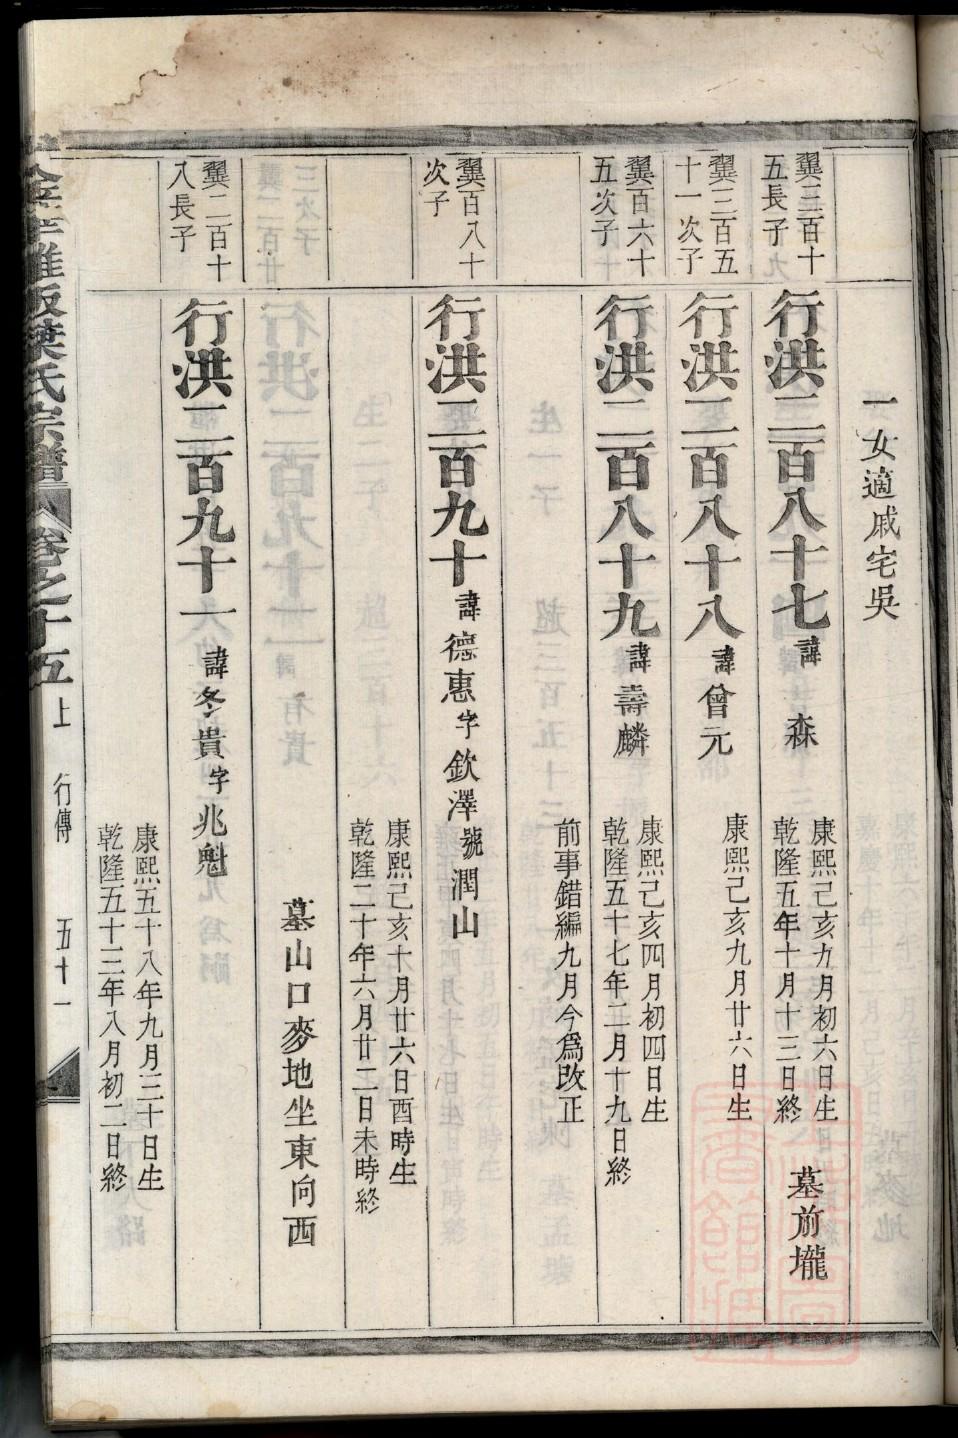 一女適戚宅吳
翼三百十
五長子
行洪二百八十七諱森
康熙己亥九月初六日生
乾隆五年十月十三日終
墓前壠
翼三百五
十一次子
行洪二百八十八諱曾元
康熙己亥九月廿六日生
翼百六十
五次子
行洪二百八十九諱壽麟
康熙己亥四月初四日生
乾隆五十七年二月十九日終
前事錯編九月今爲改正
翼百八十
次子
行洪二百九十諱德惠字欽澤號潤山
康熙己亥十月廿六日酉時生
乾隆二十年六月廿二日未時終
墓山口麥地坐東向西
翼二百十
八長子
行洪二百九十一諱冬貴字兆魁
康熙五十八年九月三十日生
乾隆五十三年八月初二日終
葉氏宗譜 卷之十五上 行傳 五十一